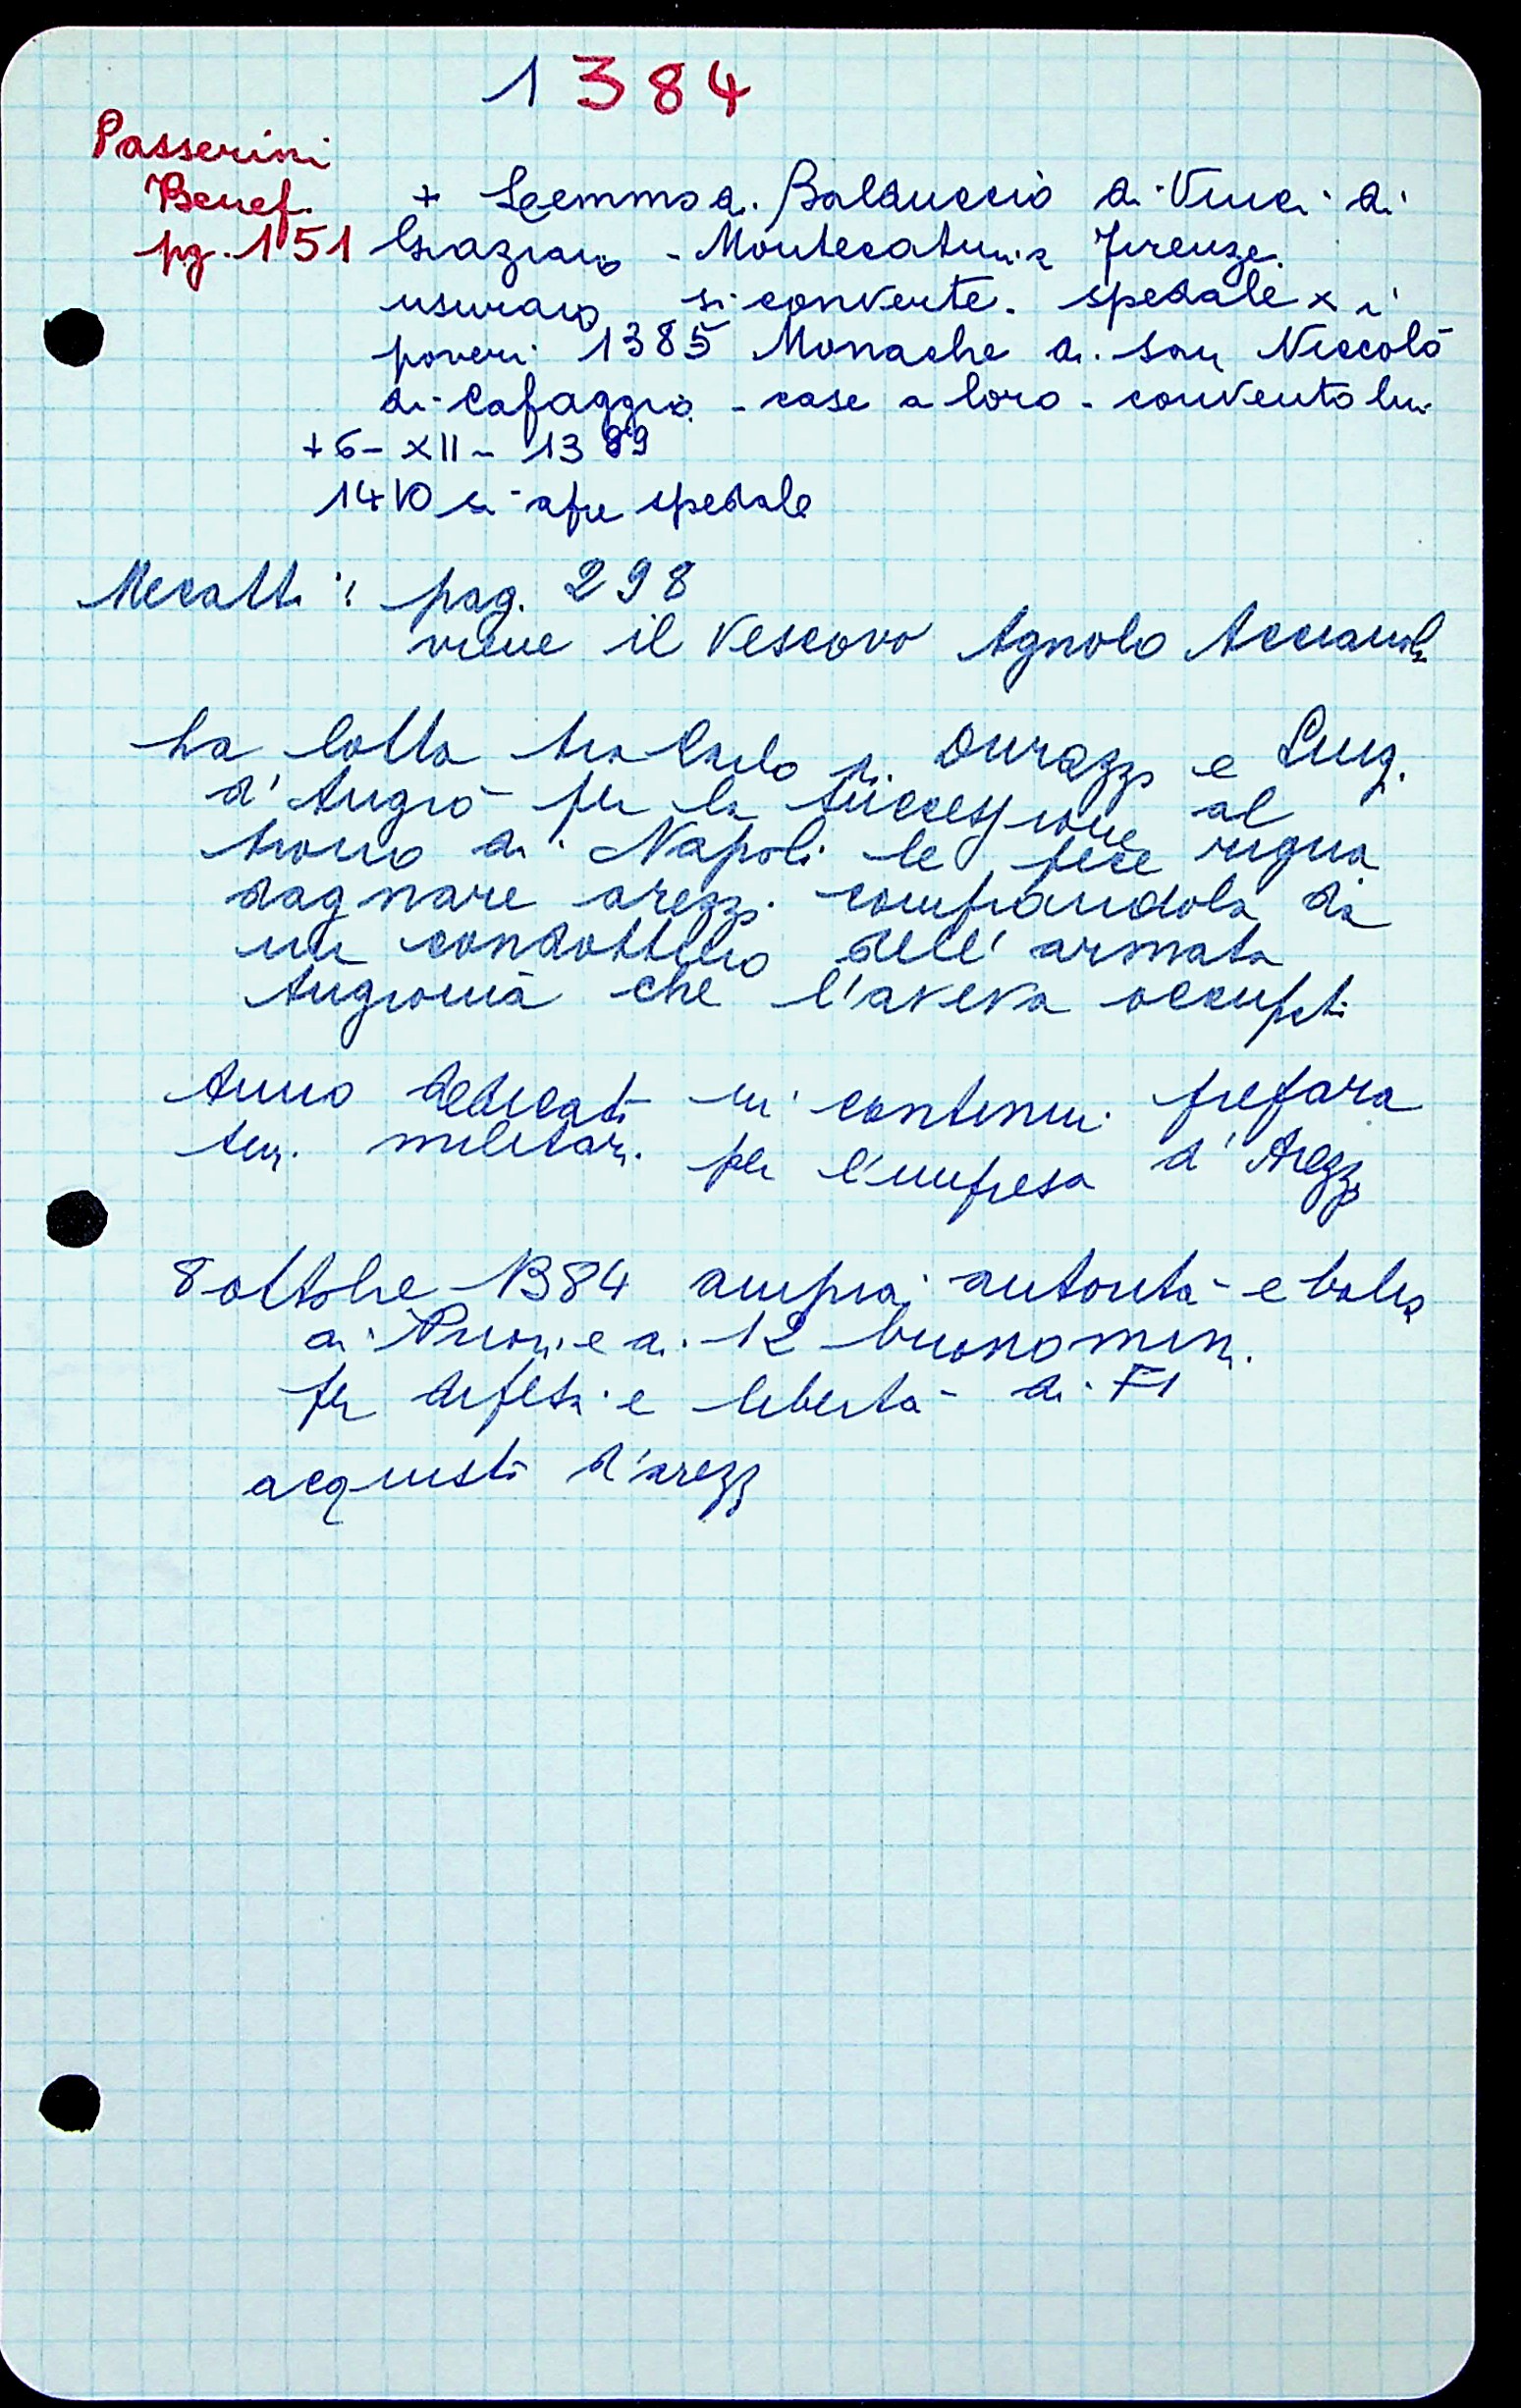 1384
Passerini
Benef.
pg. 151
+ Lemmo di Balduccio di Vinci di
Graziano - Montecatini a Firenze.
usuraio si converte. spedale x i
poveri 1385 Monache di san Niccolò
di Cafaggio - case a loro - convento lui
+ 6 - XII - 1389
1410 si apre spedale
Mecatti : pag. 298
viene il Vescovo Agnolo Acciaiuoli
la lotta tra Carlo di Durazzo e Luig.
d'Angiò per la successione al
trono di Napoli le fece rigua
dagnare arezzo comprandola da
un condottiero dell' armata
Angioina che l'aveva occupata
Anno dedicato in continui prepara
tivi militari per l'impresa d'Arezzo
8 ottobre 1384 ampia autorità e balia
ai Priori e ai 12 buonomini
per difesa e libertà di FI
acquisto d'arezzo